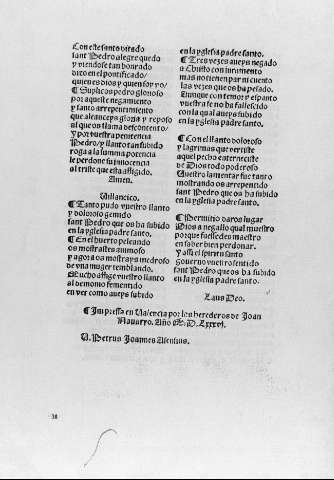 Con este santo virado
sant Pedro alegre quedo
y viendose tan honrado
dixo en el pontificado/
quien es dios y quien soy yo/
¶ Suplicoos pedro glorioso
por aqueste negamiento
y santo arrepentimiento
que alcanceys gloria y reposo
al que os llama descontento/
Y por vuestra penitencia
Pedro/ y llanto tan subido
roga a la summa potencia
le perdone su innocencia
al triste que esta affligido.
Amen.
Villancico.
¶ Tanto pudo vuestro llanto
y doloroso gemido
sant Pedro que os ha subido
en la yglesia padre santo.
¶ En el huerto peleando
os mostrastes animoso
y agora os mostrays medroso
de vna muger temblando.
Mucho afflige vuestro llanto
al demonio fementido
en ver como aueys subido
en la yglesia padre santo.
¶ Tres vezes aueys negado
a Christo con juramento
mas no tienen par ni cuento
las vezes que os ha pesado.
Aunque con temor y espanto
vuestra fe no ha fallescido
con la qual aueys subido
en la yglesia padre santo.
¶ Con el llanto doloroso
y lagrimas que vertiste
aquel pecho enterneciste
de Dios todo poderoso
Vuestro lamentar fue tanto
mostrando os arrepentido
sant Pedro que os ha subido
en la yglesia padre santo.
¶ Permitio daros lugar
Dios a negallo qual muestro
porque fuessedes maestro
en saber bien perdonar.
Y assi el spiritu santo
gouerno vuestro sentido
sant Pedro que os ha subido
en la yglesia padre santo.
Laus Deo.
¶ Impressa en Valencia por los herederos de Joan
Nauarro. Año M.D.Lxxxvi.
V. Petrus Joannes Assensius.
38